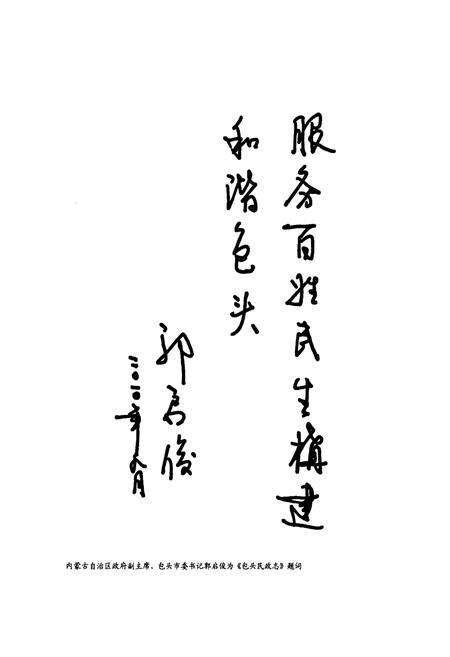 服务百姓民生构建
和谐包头
郭启俊
二〇一〇年八月
内蒙古自治区政府副主席、包头市委书记郭启俊为《包头民政志》题词